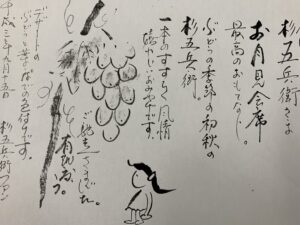 杉五兵衛さま
お月見会席
最高のおもてなし。
ぶどうの季節の初秋の
杉五兵衛
一本のすすらく風情
晴れがましいおみやげです。
ご馳走さまでした。
有難う。
デザートの
ぶどうと葉っぱでの色付けです。
平成三年九月十五日
杉五兵衛ファン